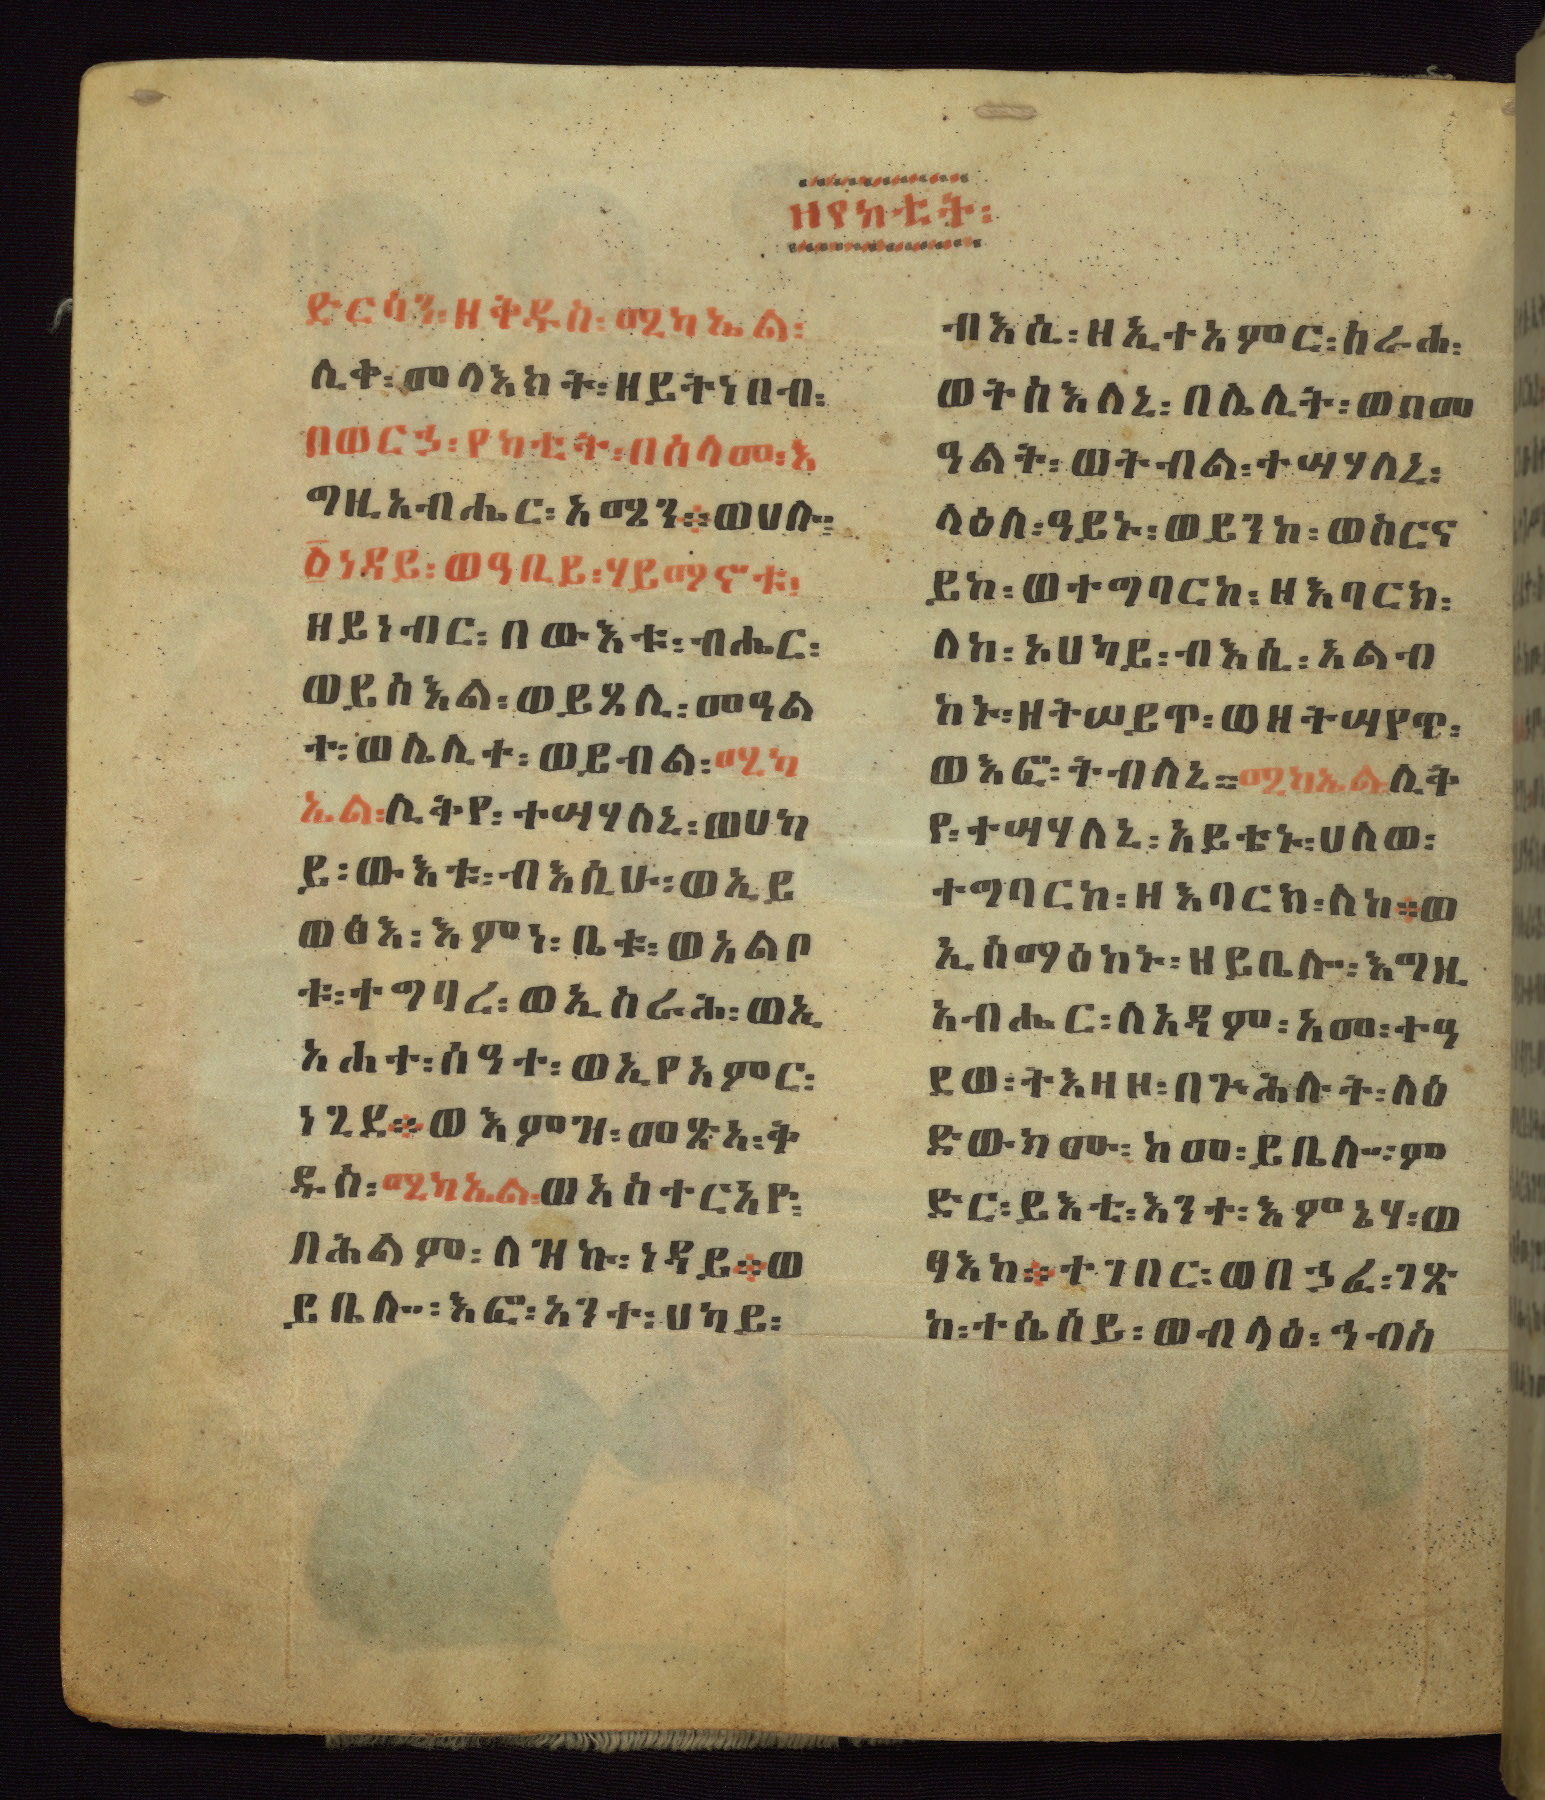 ዘየካቲት፡
ድርሳን፡ዘቅዱስ፡ሚካኤል፡
ሊቀ፡መላእክት፡ዘይትነበብ፡
በወርኃ፡የካቲት፡በሰላመ፡እ
ግዚአብሔር፡አሜን፨ወሀሎ፡
፩ነዳይ፡ወዓቢይ፡ሃይማኖቱ፡
ዘይነብር፡በውእቱ፡ብሔር፡
ወይስእል፡ወይጼሊ፡መዓል
ተ፡ወሌሊተ፡ወይብል፡ሚካ
ኤል፡ሊቅየ፡ተሣሃለኒ፡ወሀካ
ይ፡ውእቱ፡ብእሲሁ፡ወኢይ
ወፅእ፡እምነ፡ቤቱ፡ወአልቦ
ቱ፡ተግባረ፡ወኢስራሕ፡ወኢ
አሐተ፡ሰዓተ፡ወኢየአምር፡
ነጊደ፨ወእምዝ፡መጽአ፡ቅ
ዱስ፡ሚካኤል፡ወአስተርአየ፡
በሕልም፡ለዝኩ፡ነዳይ፨ወ
ይቤሎ፡እፎ፡አንተ፡ሀካይ፡
ብእሲ፡ዘኢተአምር፡ስራሐ፡
ወትስእለኒ፡በሌሊት፡ወበመ
ዓልት፡ወትብል፡ተሣሃለኒ፡
ላዕለ፡ዓይኑ፡ወይንከ፡ወስርና
ይከ፡ወተግባርከ፡ዘእባርክ፡
ለከ፡አሀካይ፡ብእሲ፡አልብ
ከኑ፡ዘትሠይጥ፡ወዘትሣየጥ፡
ወእፎ፡ትብለኒ፡ሚካኤል፡ሊቅ
የ፡ተሣሃለኒ፡አይቴኑ፡ሀለወ፡
ተግባርከ፡ዘእባርክ፡ለከ፨ወ
ኢሰማዕከኑ፡ዘይቤሎ፡እግዚ
አብሔር፡ለአዳም፡አመ፡ተዓ
ደወ፡ትእዛዞ፡በጕሕሉት፡ለዕ
ድውከሙ፡ከመ፡ይቤሎ፡ም
ድር፡ይእቲ፡እንተ፡እምኔሃ፡ወ
ፃእከ፨ተገበር፡ወበኃፈ፡ገጽ
ከ፡ተሴሰይ፡ወብላዕ፡ኅብስ